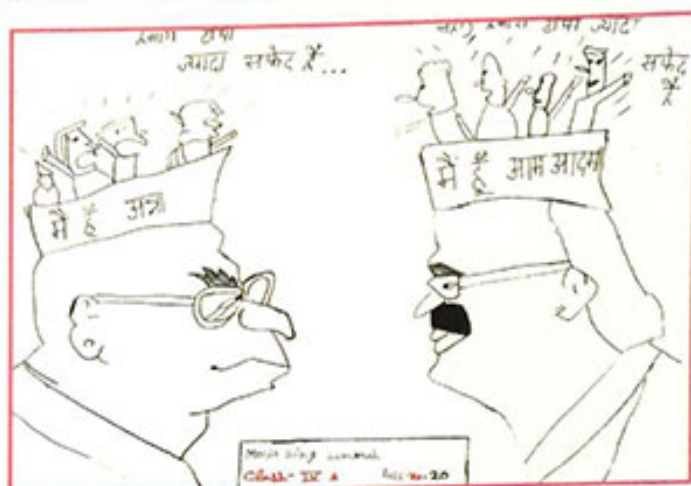 हमारी टोपी
ज्यादा सफेद है...
नहीं, हमारी टोपी ज्यादा
सफेद
है
मैं हूँ अन्ना
मैं हूँ आम आदमी
Class - IV A Roll no. 20